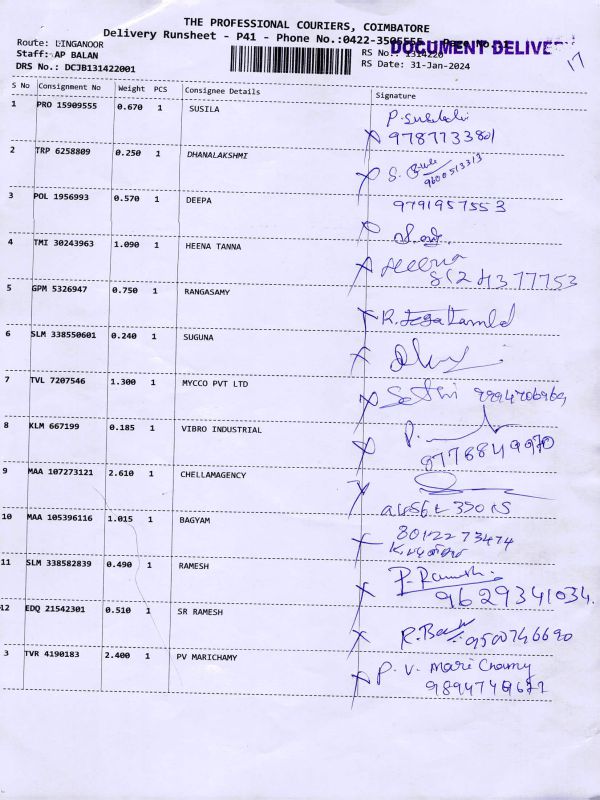 THE PROFESSIONAL COURIERS, COIMBATORE
Delivery Runsheet - P41 - Phone No.:0422-3505555
DOCUMENT DELIVE
Route: LINGANOOR
RS No.: 1314220
Staff: AP BALAN
RS Date: 31-Jan-2024
DRS No.: DCJB131422001
17
S No Consignment No Weight PCS Consignee Details Signature
1 PRO 15909555 0.670 1 SUSILA
X 9787733801
2 TRP 6258809 0.250 1 DHANALAKSHMI
X S. 9600513313
3 POL 1956993 0.570 1 DEEPA 9791957553
X
4 TMI 30243963 1.090 1 HEENA TANNA
X Heena
5 GPM 5326947 0.750 1 RANGASAMY
X R.
6 SLM 338550601 0.240 1 SUGUNA
X
7 TVL 7207546 1.300 1 MYCCO PVT LTD
X 9994706969
8 KLM 667199 0.185 1 VIBRO INDUSTRIAL
X P.
9 MAA 107273121 2.610 1 CHELLAMAGENCY
X
10 MAA 105396116 1.015 1 BAGYAM
X 8012273474
11 SLM 338582839 0.490 1 RAMESH
X P. Ramesh
9629341034.
12 EDQ 21542301 0.510 1 SR RAMESH
X R. 9500746690
3 TVR 4190183 2.400 1 PV MARICHAMY
X P. V. Mari Chamy